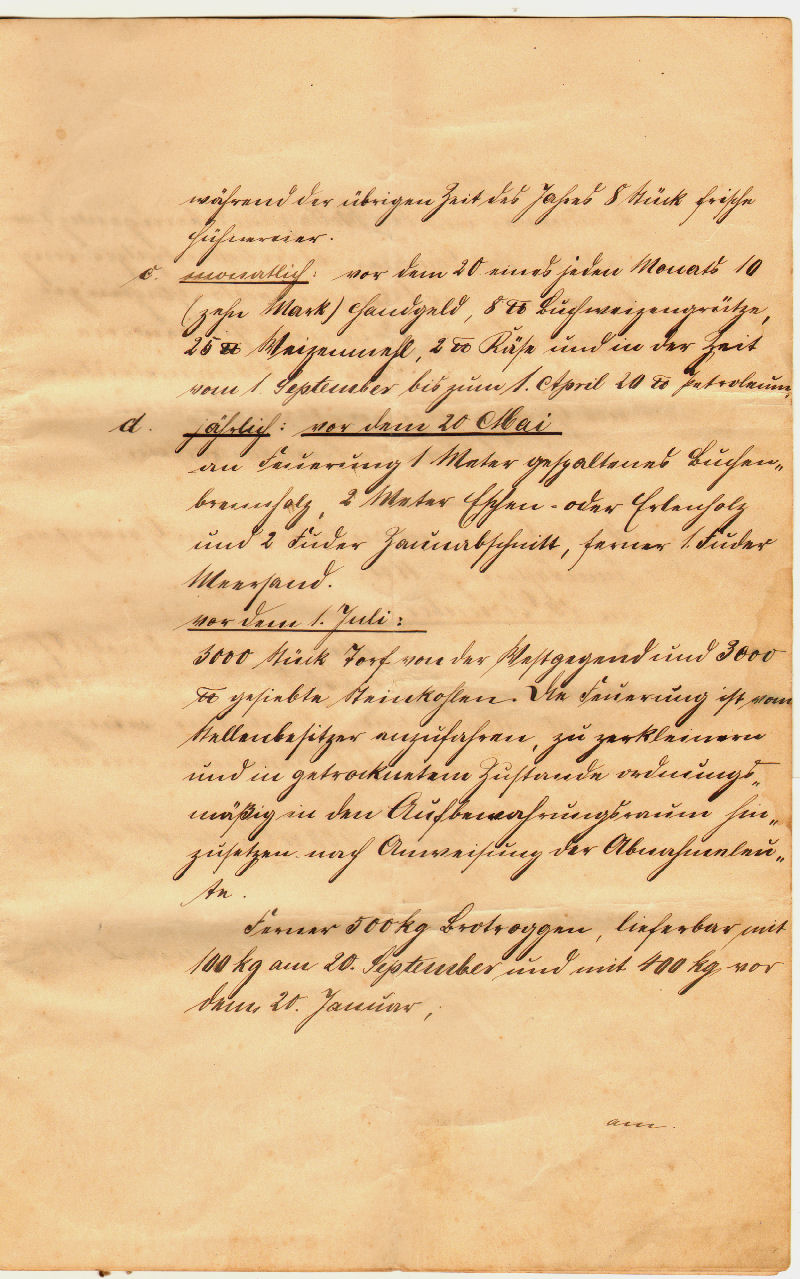 während der übrigen Zeit des Jahres 8 Stück frische
Hühnereier.
c. monatlich: vor dem 20 eines jeden Monats 10
(zehn Mark) Handgeld, 8 ℔ Buchweizengrütze,
25 ℔ Weizenmehl, 2 ℔ Käse und in der Zeit
vom 1. September bis zum 1. April 20 ℔ Petroleum,
d. jährlich: vor dem 20 Mai
an Feuerung 1 Meter gespaltenes Buchen„
brennholz, 2 Meter Eschen- oder Erlenholz
und 2 Fuder Zaunabschnitt, ferner 1. Fuder
Meersand.
vor dem 1. Juli:
3000 Stück Torf von der Westgegend und 3000
℔ gesiebte Steinkohlen. Die Feuerung ist vom
Stellenbesitzer anzufahren, zu zerkleinern
und in getrocknetem Zustande ordnungs„
mäßig in den Aufbewahrungsraum hin„
zusetzen nach Anweisung der Abnahmeleu„
te.
Ferner 500 kg Brotroggen, lieferbar mit
100 kg am 20. September und mit 400 kg vor
dem 20. Januar,
am